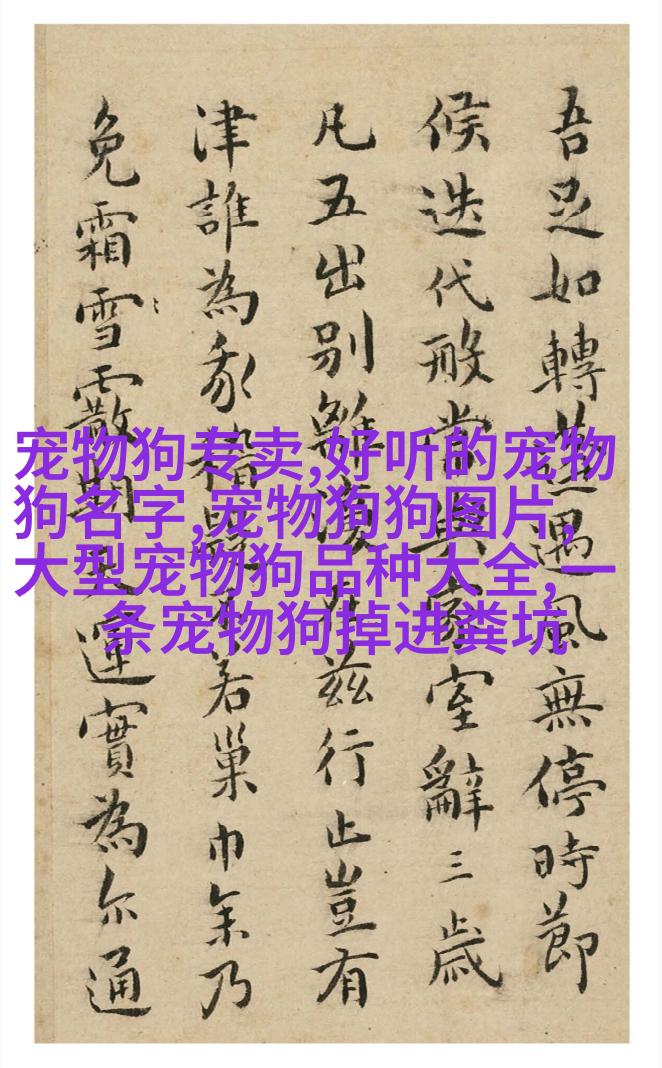 宠物狗专卖,好听的宠物
狗名字,宠物狗狗图片,
大型宠物狗品种大全,一
条宠物狗掉进粪坑
吾足如轉蓬遇風無停時節
候迭代室辭三歲
凡五出別離復在茲行止豈有
津誰為稽疑若巢乃
免霜雪霰運實為尔通